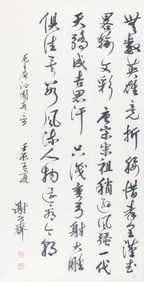 無數英雄竞折腰惜秦皇漢武
略輸文彩唐宗宋祖稍遜風騷一代
天驕成吉思汗只識彎弓射大雕
俱往矣數風流人物還看今朝
毛主席沁園春雪
壬辰